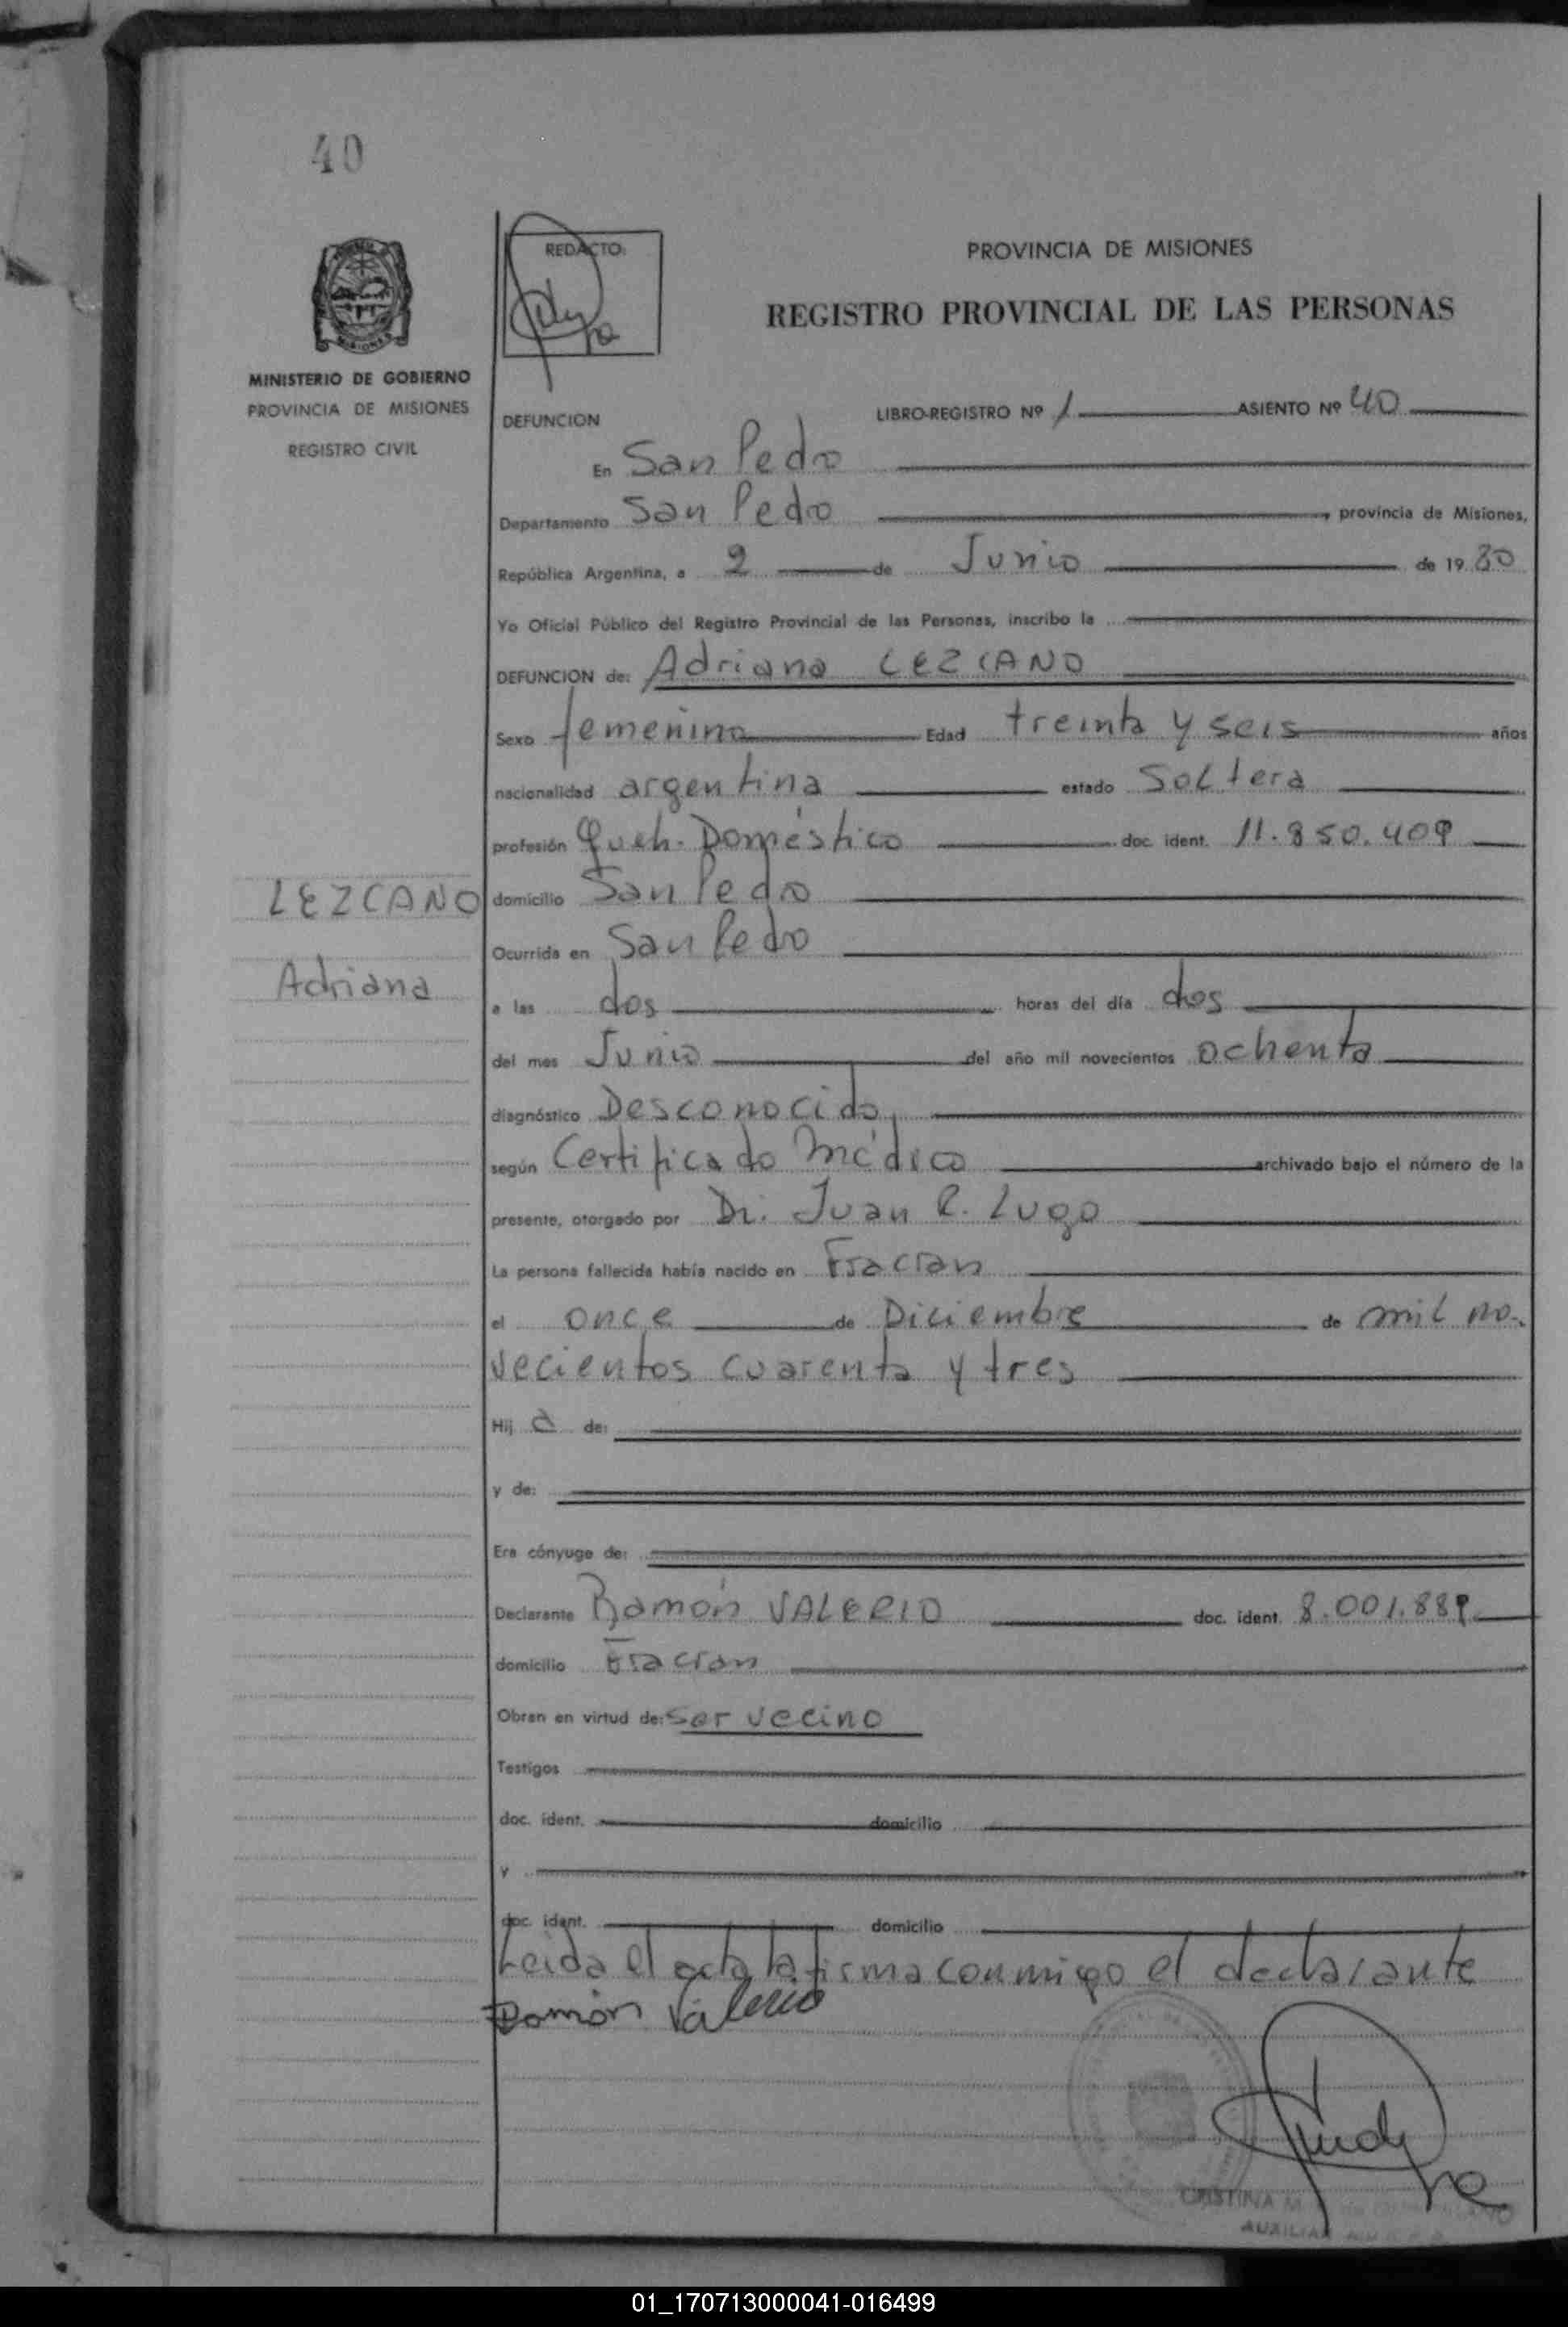 40
REDACTO:
PROVINCIA DE MISIONES
REGISTRO PROVINCIAL DE LAS PERSONAS
MISIONES
MINISTERIO DE GOBIERNO
PROVINCIA DE MISIONES
REGISTRO CIVIL
DEFUNCION LIBRO-REGISTRO Nº 1 ASIENTO Nº 40
En San Pedro
Departamento San Pedro, provincia de Misiones,
República Argentina, a 2 de Junio de 19 80
Yo Oficial Público del Registro Provincial de las Personas, inscribo la
DEFUNCION de: Adriana LEZCANO
Sexo femenino Edad treinta y seis años
nacionalidad argentina estado Soltera
profesión Queh. Doméstico doc. ident. 11.850.409
LEZCANO domicilio San Pedro
Ocurrida en San Pedro
Adriana a las dos horas del día dos
del mes Junio del año mil novecientos ochenta
diagnóstico Desconocido,
según Certificado Médico archivado bajo el número de la
presente, otorgado por Dr. Juan R. Lugo
La persona fallecida había nacido en Fracran
el once de Diciembre de mil no-
vecientos cuarenta y tres
Hij a de:
y de:
Era cónyuge de:
Declarante Ramón VALERIO doc. ident. 8.001.889
domicilio Fracran
Obran en virtud de: ser vecino
Testigos
doc. ident. domicilio
y
doc. ident. domicilio
Leida el acta la firma conmigo el declarante
Ramón Valerio
CRISTINA M.
AUXILIAR
01_170713000041-016499